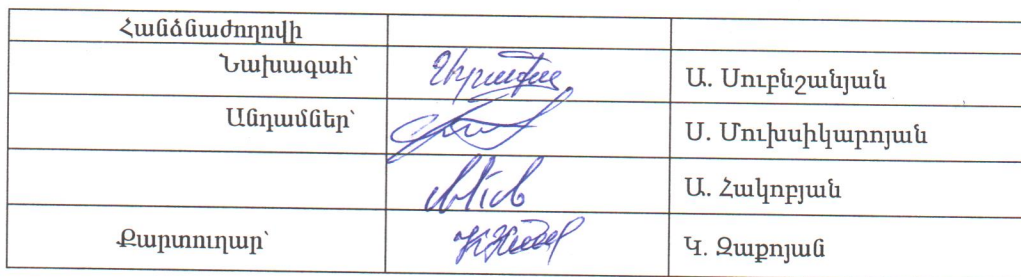 Հանձնաժողովի
Նախագահ՝ Ա. Սուբնշանյան
Անդամներ՝ Ս. Մուխսիկարոյան
Ա. Հակոբյան
Քարտուղար՝ Կ. Զաքոյան